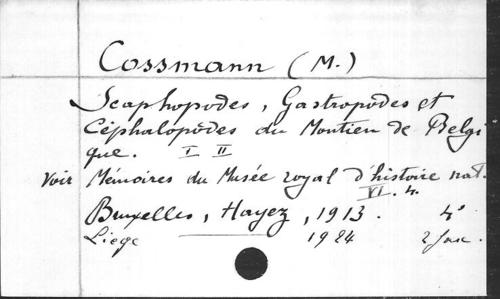 Cossmann (M.)
Scaphopodes, Gastropodes et
Céphalopodes du Montien de Belgi
que. I II
Voir Mémoires du Musée royal d'histoire nat.
VI. 4.
Bruxelles, Hayez, 1913. 4°
Liege 1924 2 fasc.